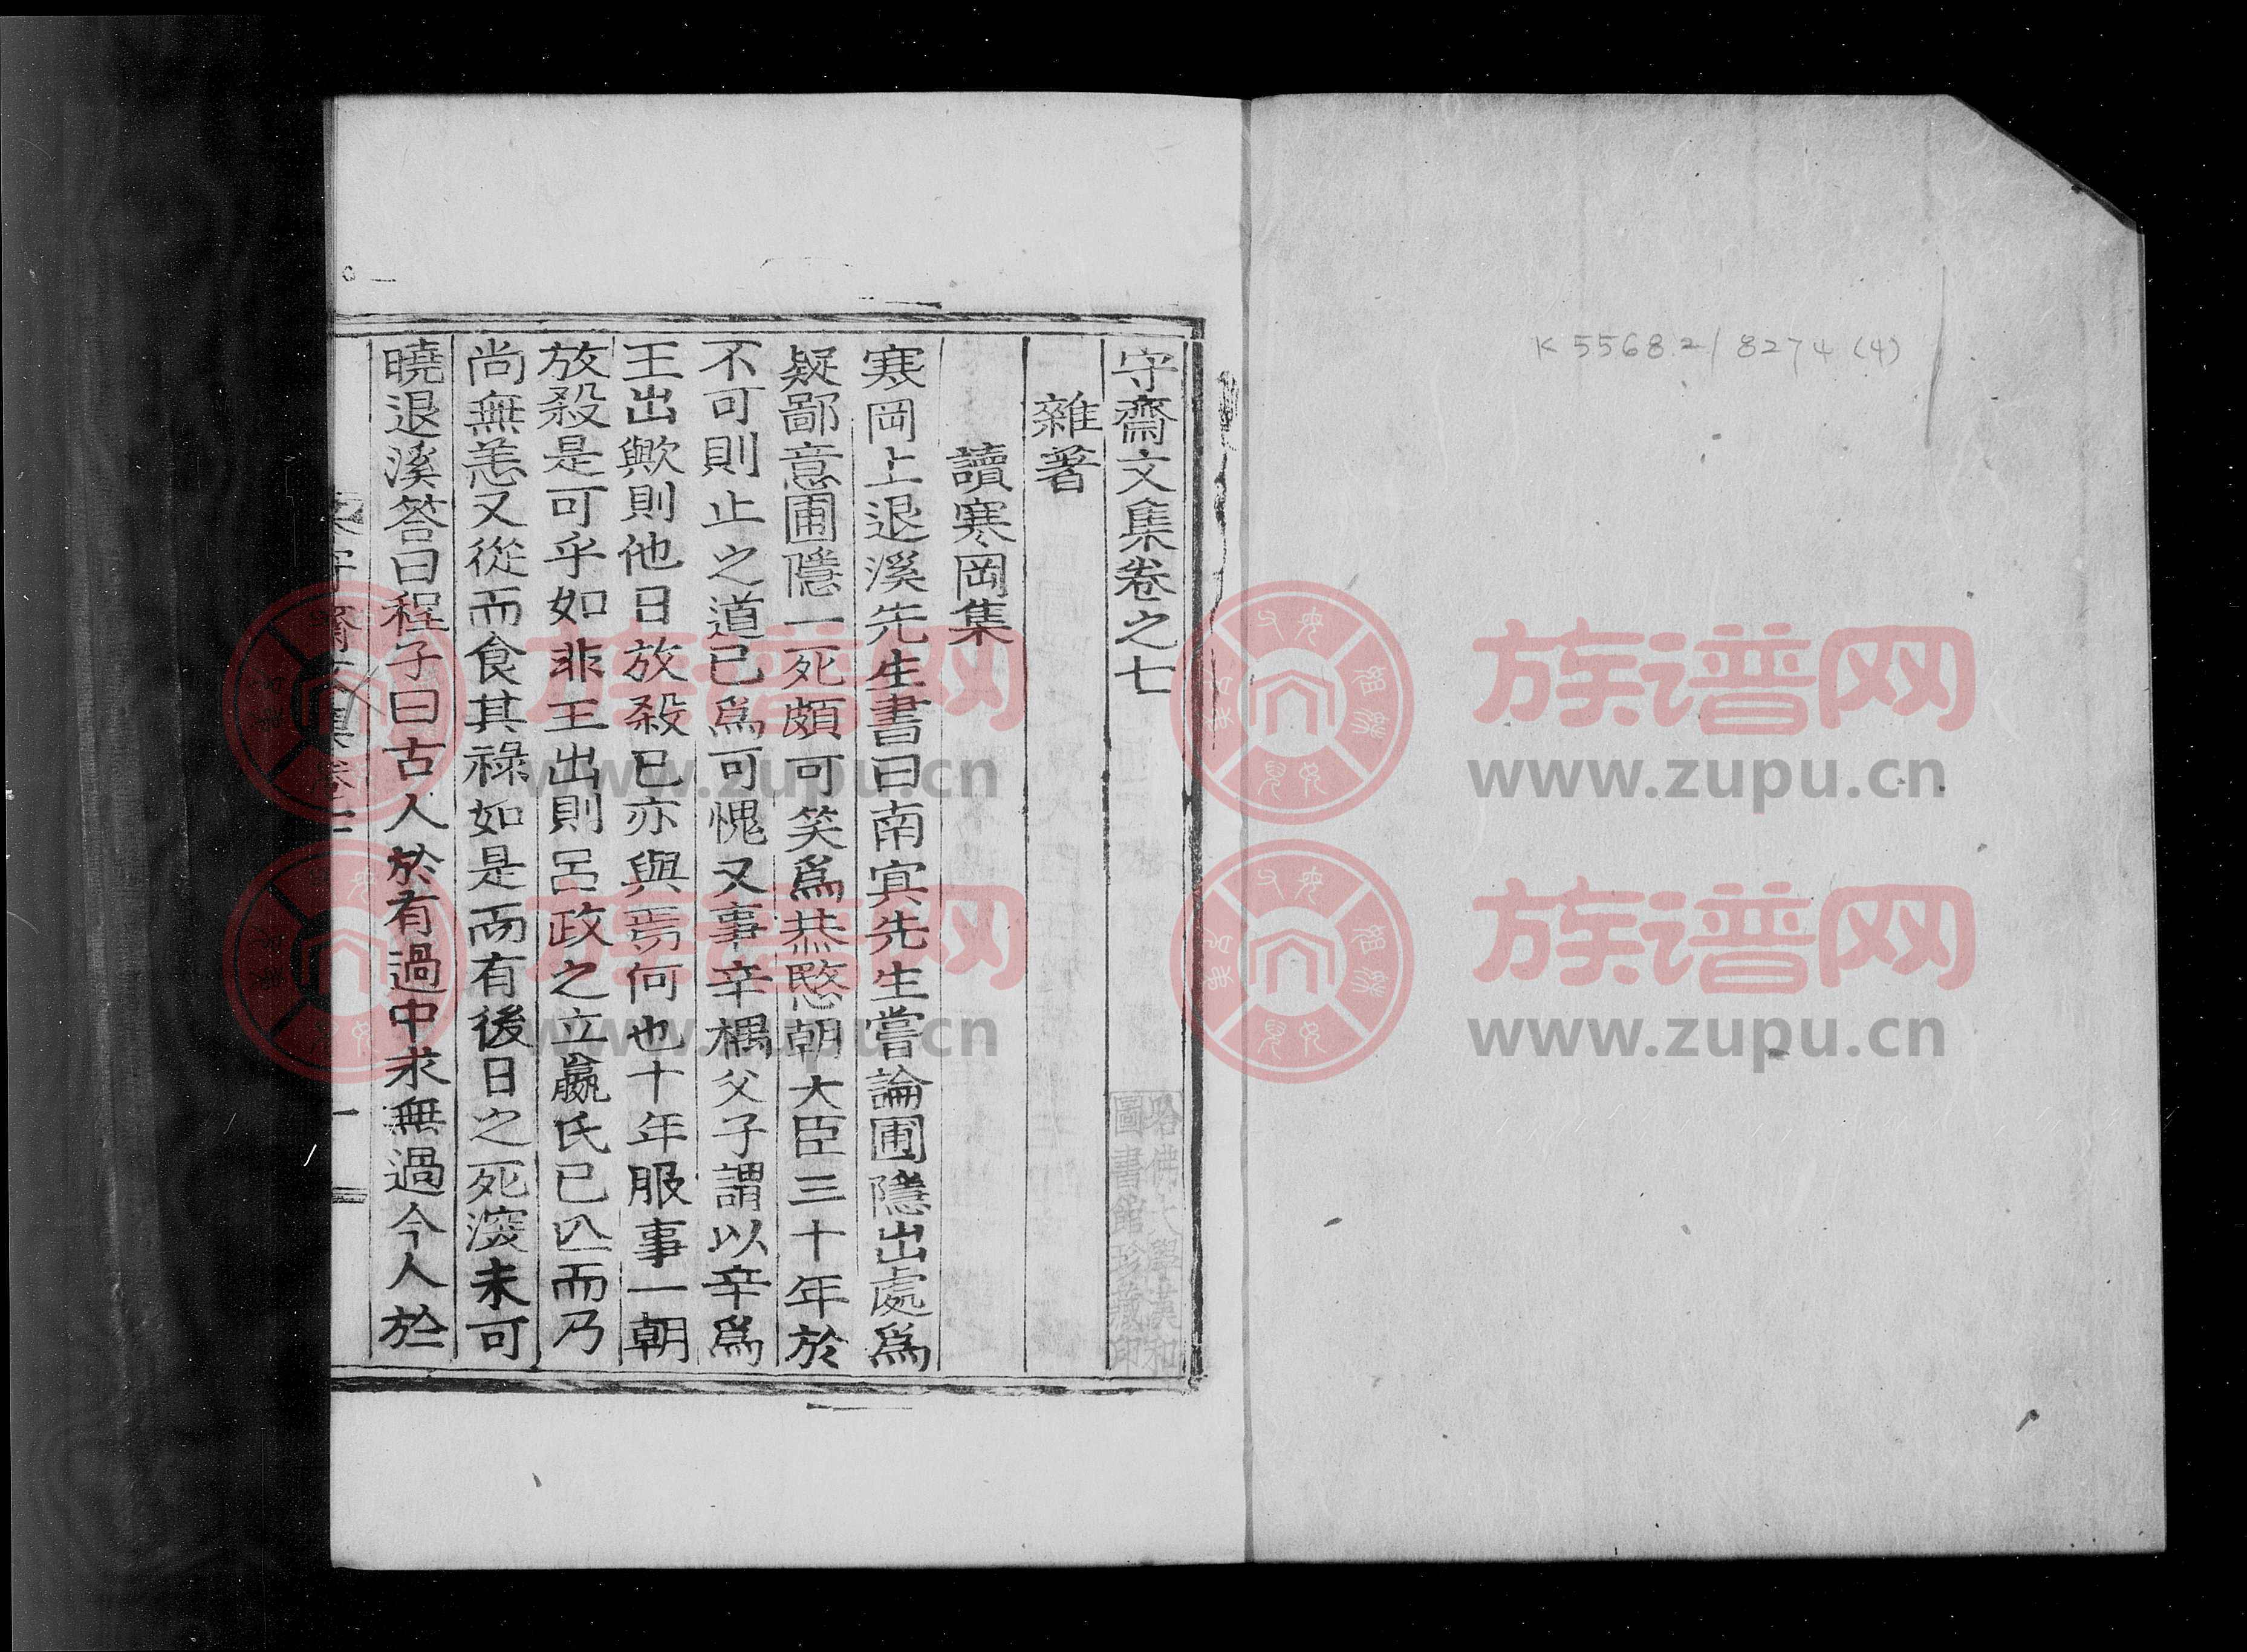 K 5568.2/8274 (4)
守齋文集卷之七
雜著
讀寒岡集
寒岡上退溪先生書曰南冥先生嘗論圃隱出處爲
疑鄙意圃隱一死頗可笑爲恭愍朝大臣三十年於
不可則止之道已爲可愧又事辛禑父子謂以辛爲
王出歟則他日放殺已亦與焉何也十年服事一朝
放殺是可乎如非王出則呂政之立嬴氏已亾而乃
尚無恙又從而食其祿如是而有後日之死深未可
曉退溪答曰程子曰古人於有過中求無過今人於
守齋文集卷七
一
哈佛大學漢和
圖書館珍藏印
族谱网
www.zupu.cn
族谱网
www.zupu.cn
族谱网
www.zupu.cn
族谱网
www.zupu.cn